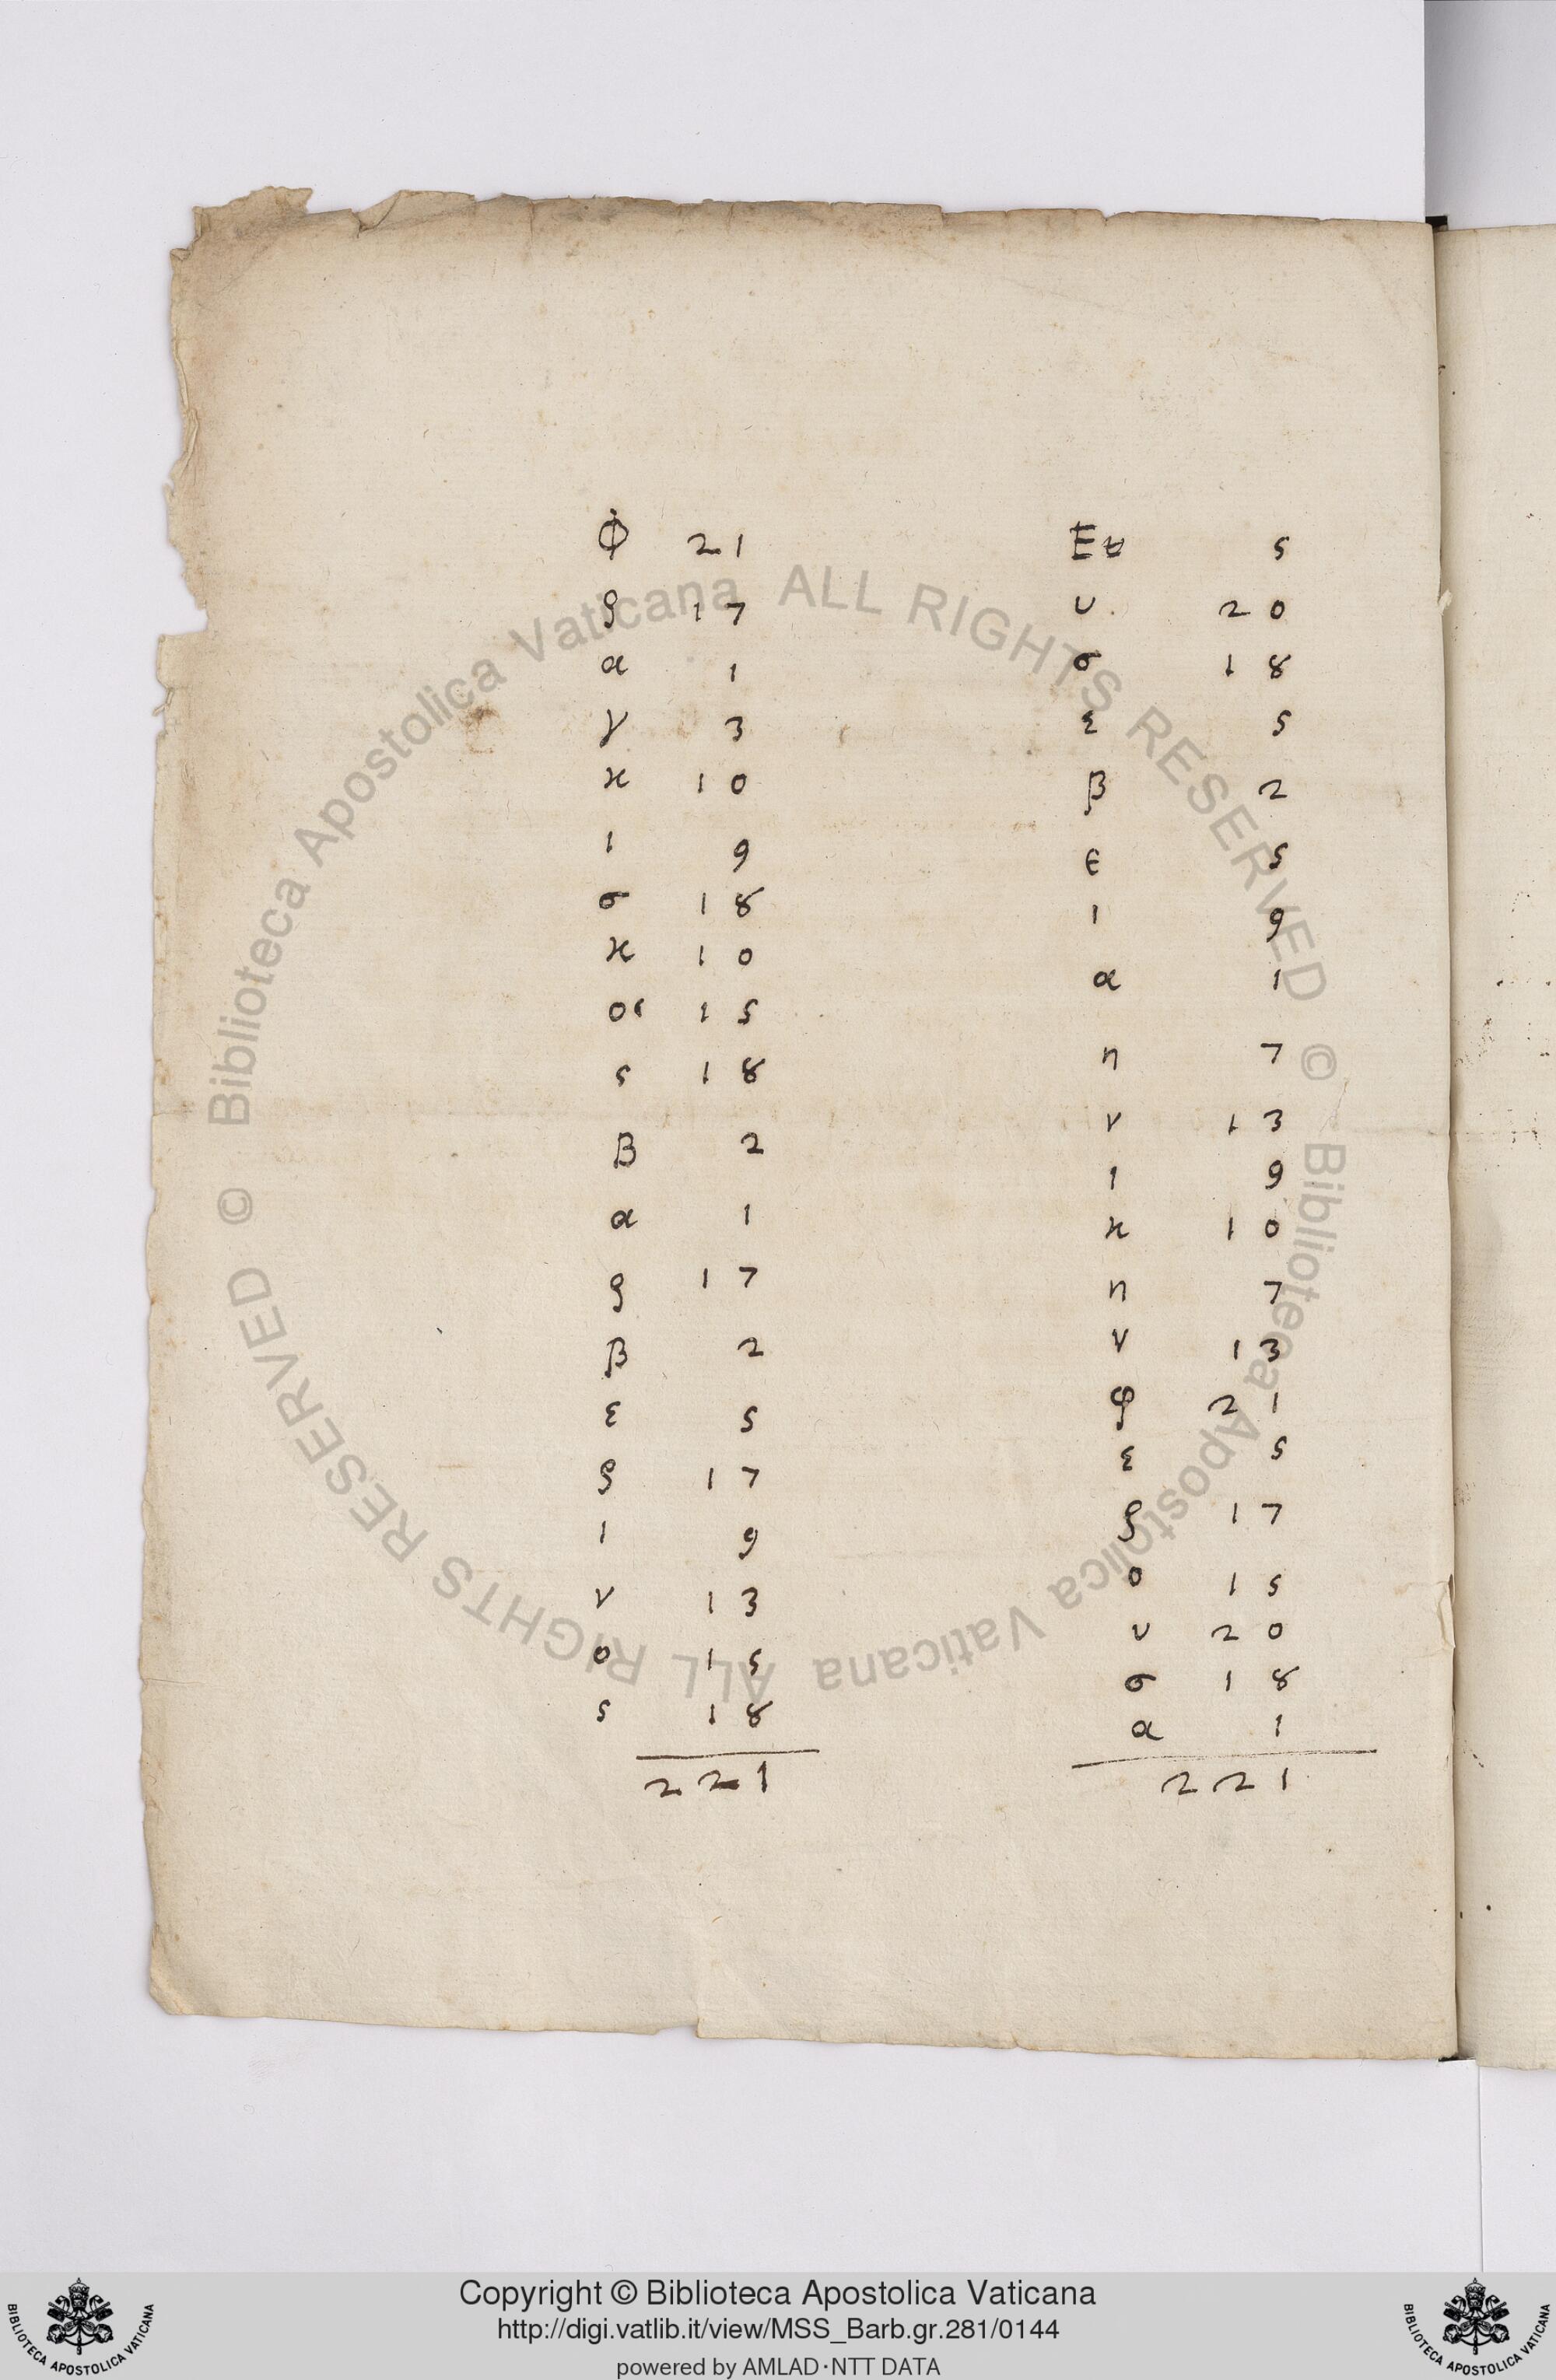 Φ 21
ρ 17
α 1
γ 3
κ 10
ι 9
σ 18
κ 10
ο 15
ς 18
β 2
α 1
ρ 17
β 2
ε 5
ρ 17
ι 9
ν 13
ο 15
ς 18
221
Ε 5
υ 20
σ 18
ε 5
β 2
ε 5
ι 9
α 1
η 7
ν 13
ι 9
κ 10
η 7
ν 13
φ 21
ε 5
ρ 17
ο 15
υ 20
σ 18
α 1
221
© Biblioteca Apostolica Vaticana ALL RIGHTS RESERVED © Biblioteca Apostolica Vaticana ALL RIGHTS RESERVED
Copyright © Biblioteca Apostolica Vaticana
http://digi.vatlib.it/view/MSS_Barb.gr.281/0144
powered by AMLAD·NTT DATA
BIBLIOTECA APOSTOLICA VATICANA
BIBLIOTECA APOSTOLICA VATICANA